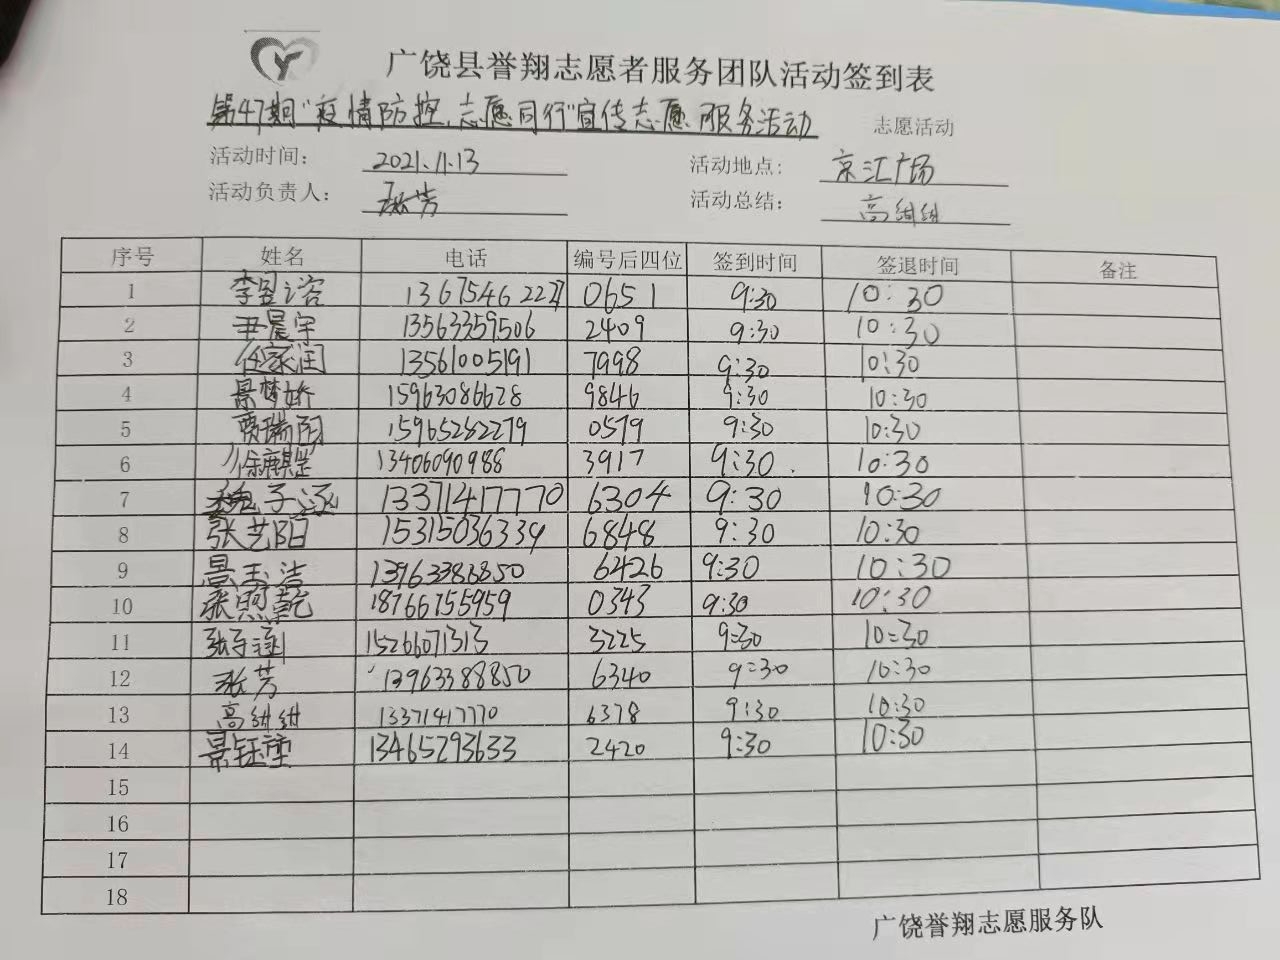 广饶县誉翔志愿者服务团队活动签到表
第47期"疫情防控,志愿同行"宣传志愿服务活动 志愿活动
活动时间： 2021.11.13 活动地点： 京汇广场
活动负责人： 张芳 活动总结： 高绀绀
序号 姓名 电话 编号后四位 签到时间 签退时间 备注
1 李昱谘 13675462227 0651 9:30 10:30
2 尹晨宇 13563359506 2409 9:30 10:30
3 任家润 13561005191 7998 9:30 10:30
4 景梦娇 15963086628 9846 9:30 10:30
5 贾瑞阳 15965282279 0579 9:30 10:30
6 徐麒罡 13406090988 3917 9:30 10:30
7 魏子涵 13371417770 6304 9:30 10:30
8 张艺阳 15315036339 6848 9:30 10:30
9 景玉洁 13963388850 6426 9:30 10:30
10 张照乾 18766755959 0343 9:30 10:30
11 张子涵 15266071313 3225 9:30 10:30
12 张芳 13963388850 6340 9:30 10:30
13 高绀绀 13371417770 6378 9:30 10:30
14 景钰 13465293633 2420 9:30 10:30
15
16
17
18
广饶誉翔志愿服务队